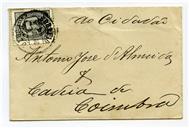 ao Cidadão
Antonio José de Almeida
Cadeia de
Coimbra